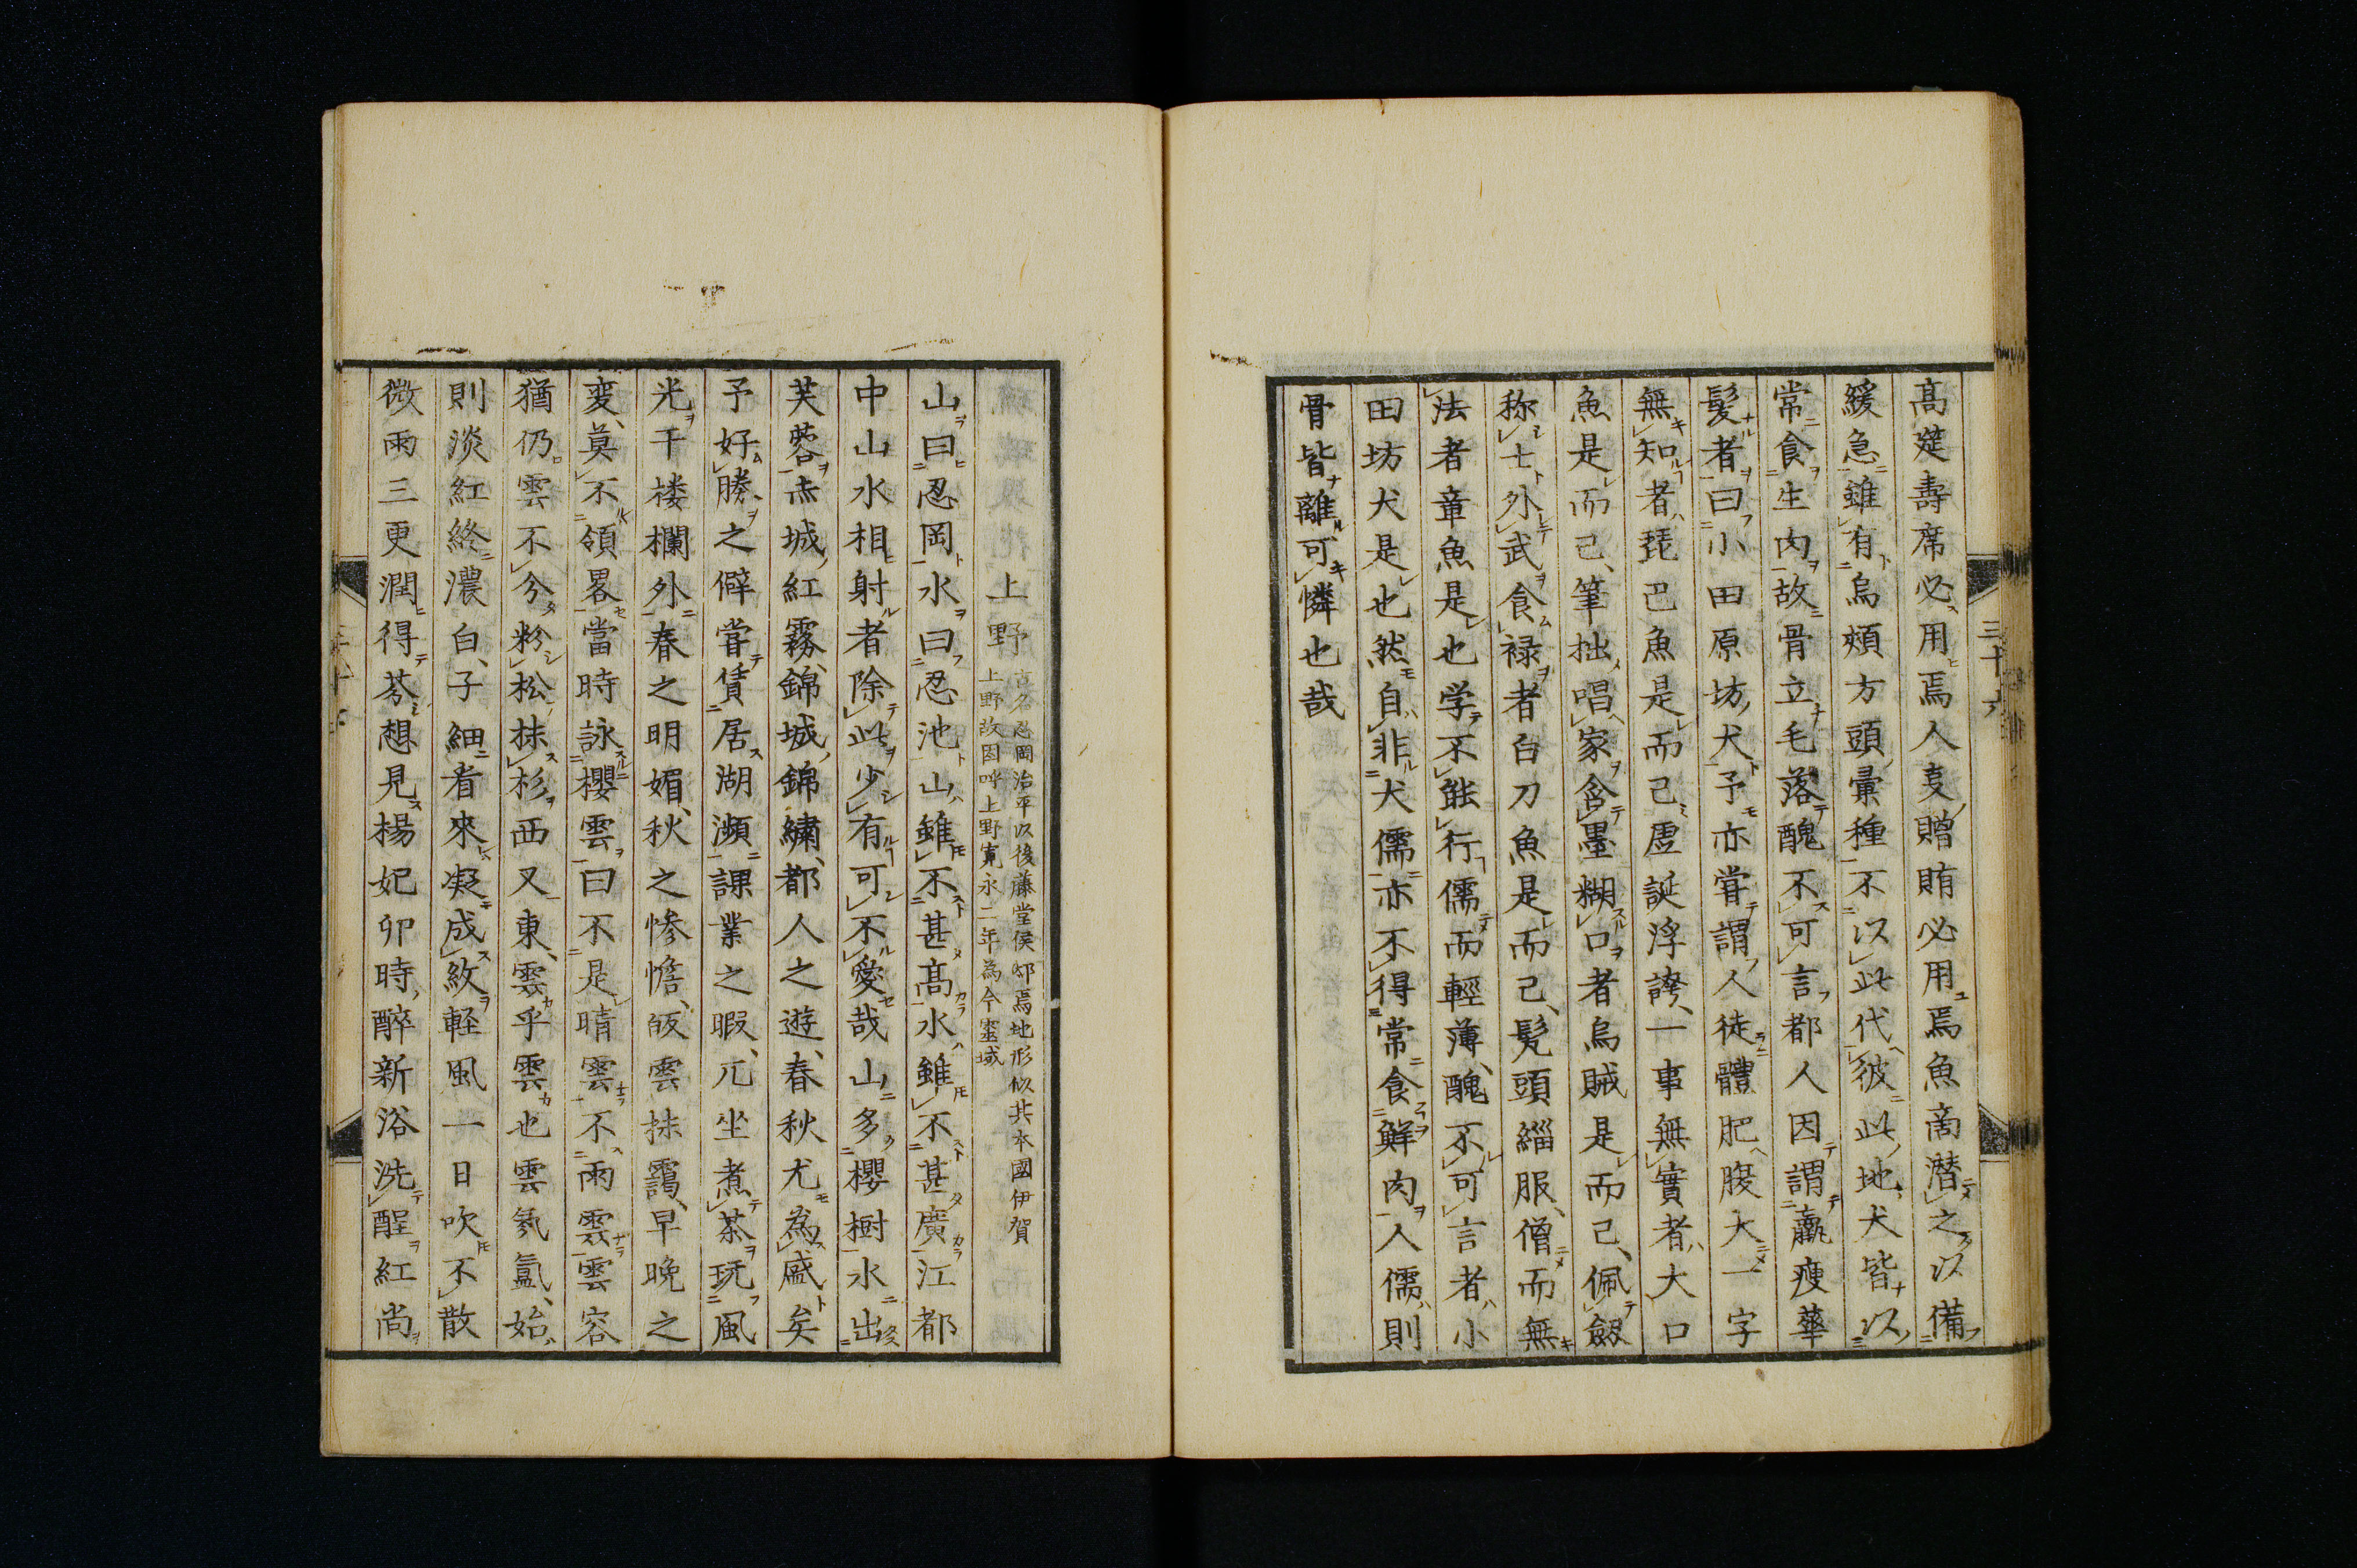 高筵壽席必用焉人吏贈賄必用焉魚商潛之以備
緩急雖有烏頰方頭彙種不以此代彼此地犬皆以
常食生肉故骨立毛落醜不可言都人因謂羸瘦華
髮者曰小田原坊犬予亦嘗謂人徒體肥腹大一字
無知者琵巴魚是而已虛誕浮誇一事無實者大口
魚是而已筆拙唱家含墨糊口者烏賊是而已佩劔
称士外武食禄者白刀魚是而已髡頭緇服僧而無
法者章魚是也学不能行儒而輕薄醜不可言者小
田坊犬是也然自非犬儒亦不得常食鮮肉人儒則
骨皆離可憐也哉
三十六
上野 古名忍岡治平以後藤堂侯邸焉地形似其本國伊賀
上野故因呼上野寛永二年為今塋域
山曰忍岡水曰忍池山雖不甚高水雖不甚廣江都
中山水相射者除此少有可不愛哉山多櫻樹水出
芙蓉赤城紅霧錦城錦繍都人之遊春秋尤為盛矣
予好勝之僻嘗賃居湖瀕課業之暇兀坐煮茶玩風
光干楼欄外春之明媚秋之惨憺皈雲抹靄早晩之
変莫不領畧當時詠櫻雲曰不是晴雲不雨雲雲容
猶仍雲不分粉松抹杉西又東雲乎雲也雲氤氳始
則淡紅終濃白子細看來凝成紋軽風一日吹不散
微雨三更潤得芬想見楊妃卯時醉新浴洗醒紅尚